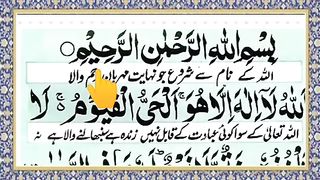 بِسْمِ اللّٰهِ الرَّحْمٰنِ الرَّحِیْمِ
اللہ کے نام سے شروع جو نہایت مہربان رحم والا
اَللّٰهُ لَاۤ اِلٰهَ اِلَّا هُوَ ۚ اَلْحَیُّ الْقَیُّوْمُ ۚ لَا
اللہ تعالیٰ کے سوا کوئی عبادت کے قابل نہیں زندہ ہے سنبھالنے والا ہے نہ